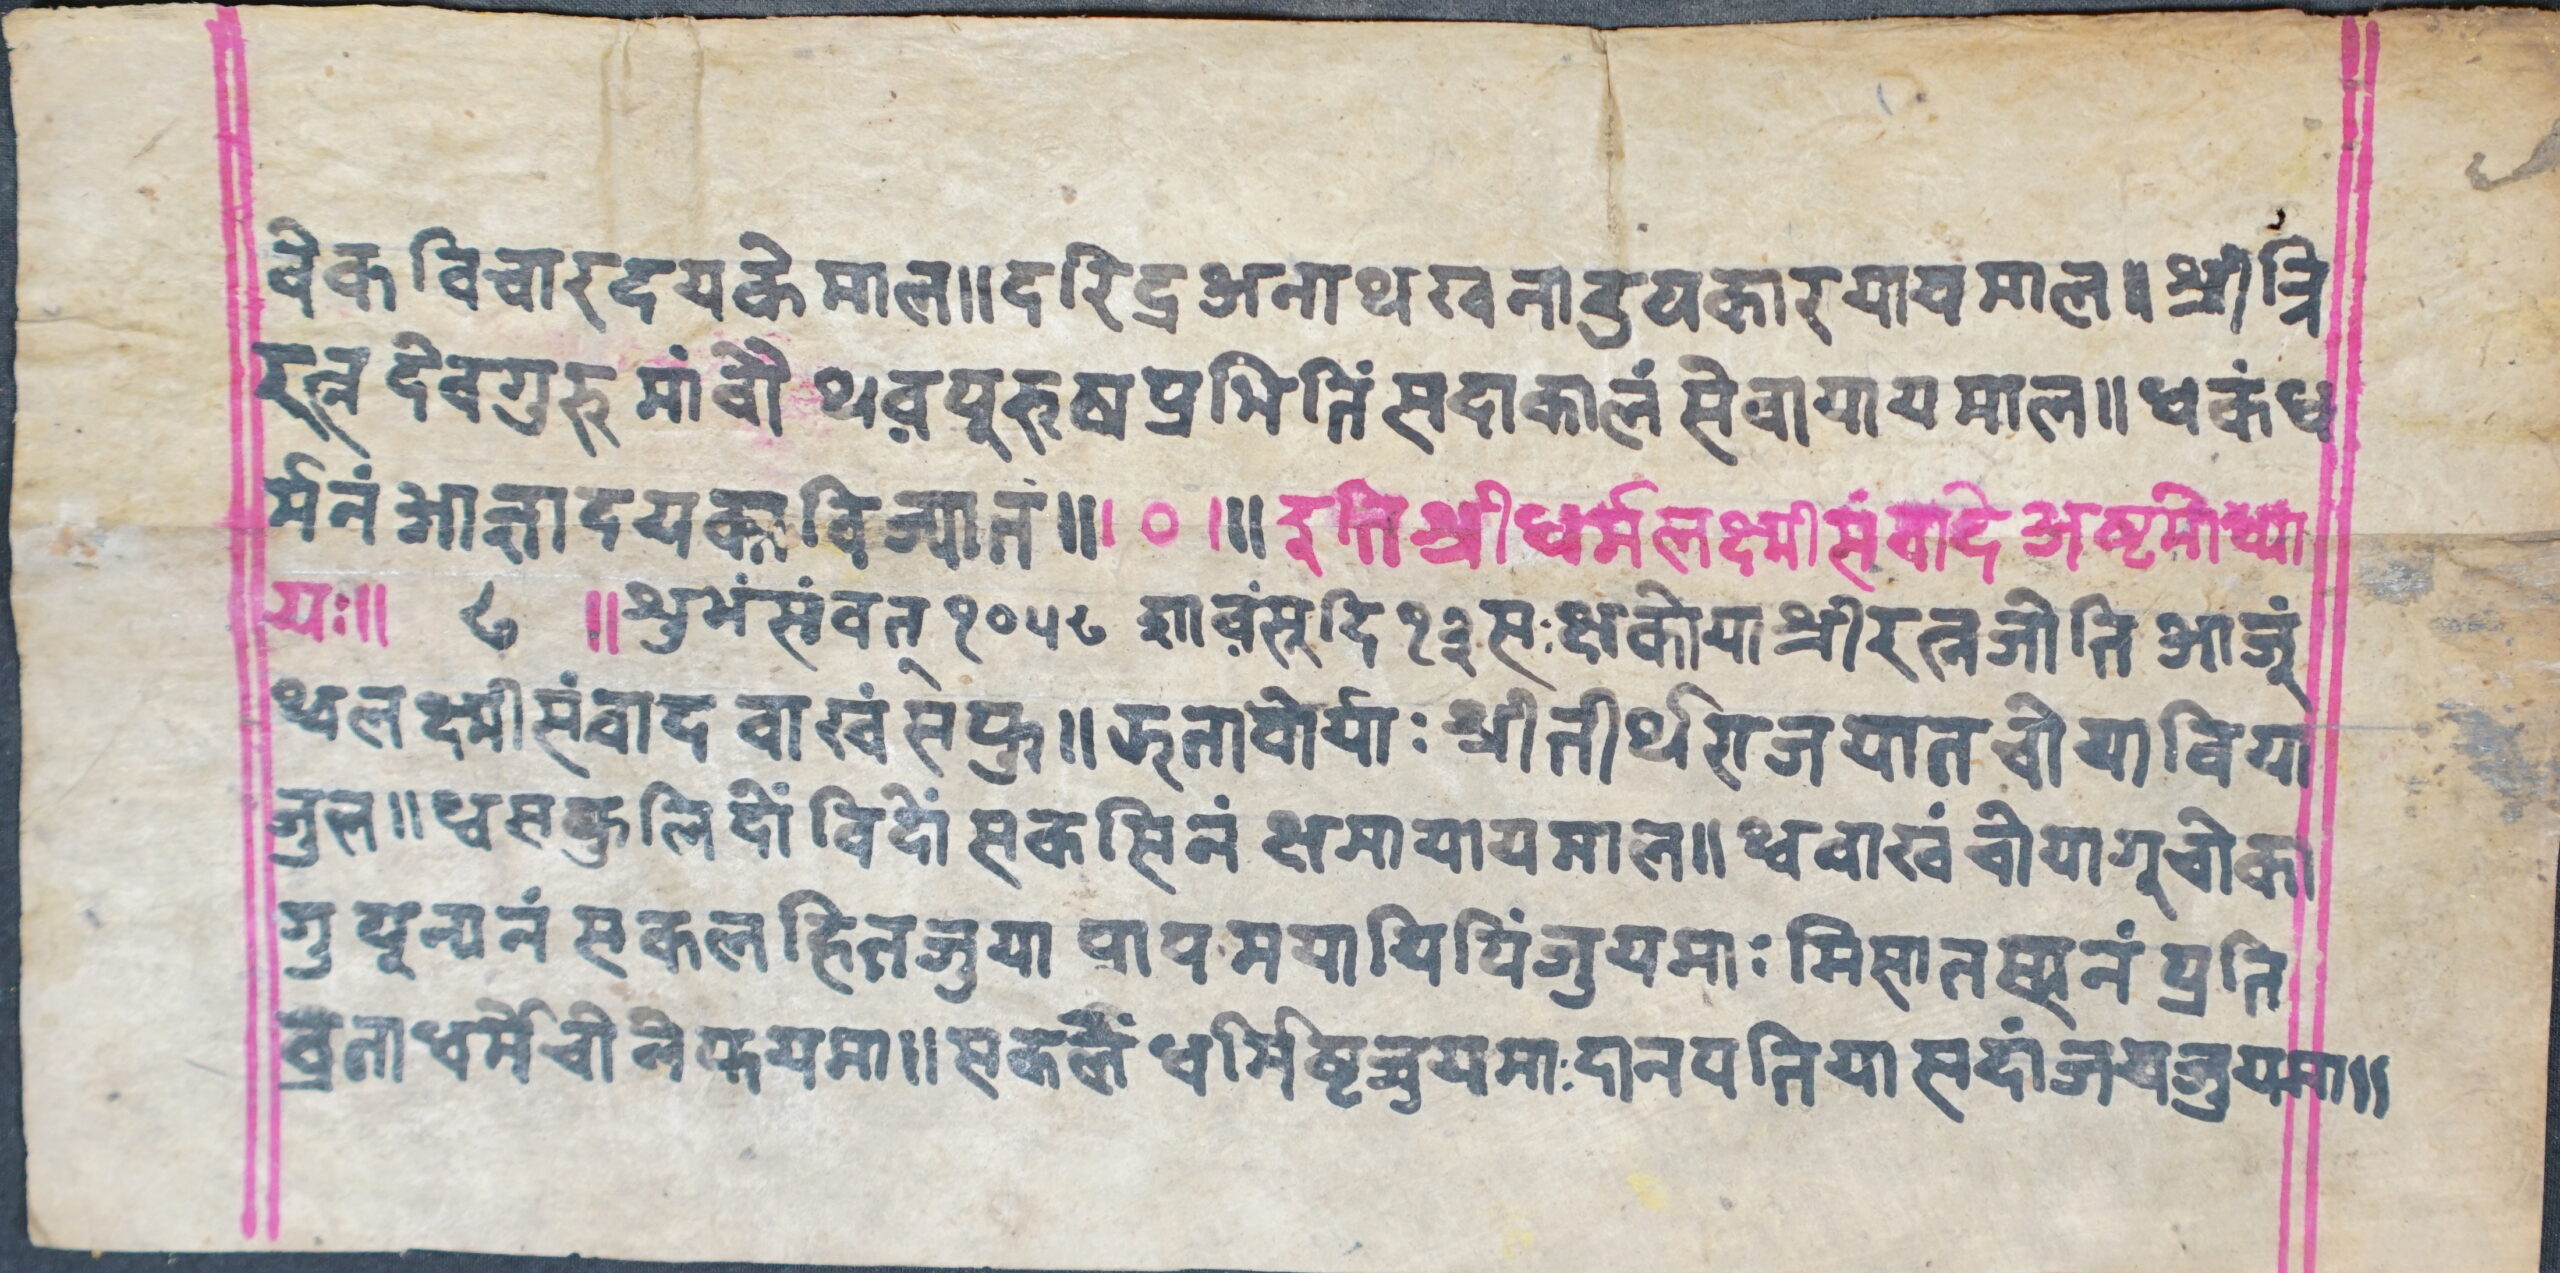 वेक विचार दयके माल॥ दरिद्र अनाथ खनाव उपकार याय माल॥ श्री त्रि
रत्न देवगुरु मां बौ थव पूरुष प्रभितिं सदाकालं सेवा याय माल॥ धकं ध
र्मनं आज्ञा दयका विज्यात॥।०।॥ इति श्री धर्मलक्ष्मी संवादे अष्टमोध्या
यः॥ ८ ॥ शुभं संवत् १०५८ सुदि १३ श्री रत्न जोति आजूं
थ्व लक्ष्मी संवाद बाखं सफु॥ श्री तीर्थराजयात चोया विया
जुल॥ थ्व सफुलि दों विदों सकसिनं क्षमा याय माल॥ थ्व बाखं चोयागू चोका
गु पून्यनं सकल हित जुया पाप मयायिपिं जुयमाः मिसातय्सनं प्रति
व्रता धर्मे चोनेफयमा॥ सकलें धर्मिष्ट जुयमाः दानपतिया सदां जय जुयमा॥